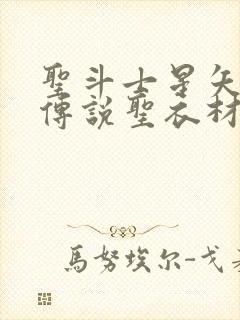 聖斗士星矢
傳說聖衣材
馬努埃尔-戈